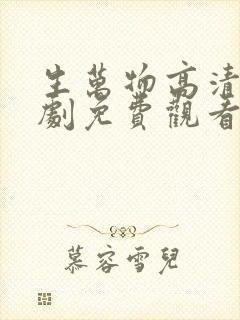 生萬物高清
劇免費觀看
慕容雪兒